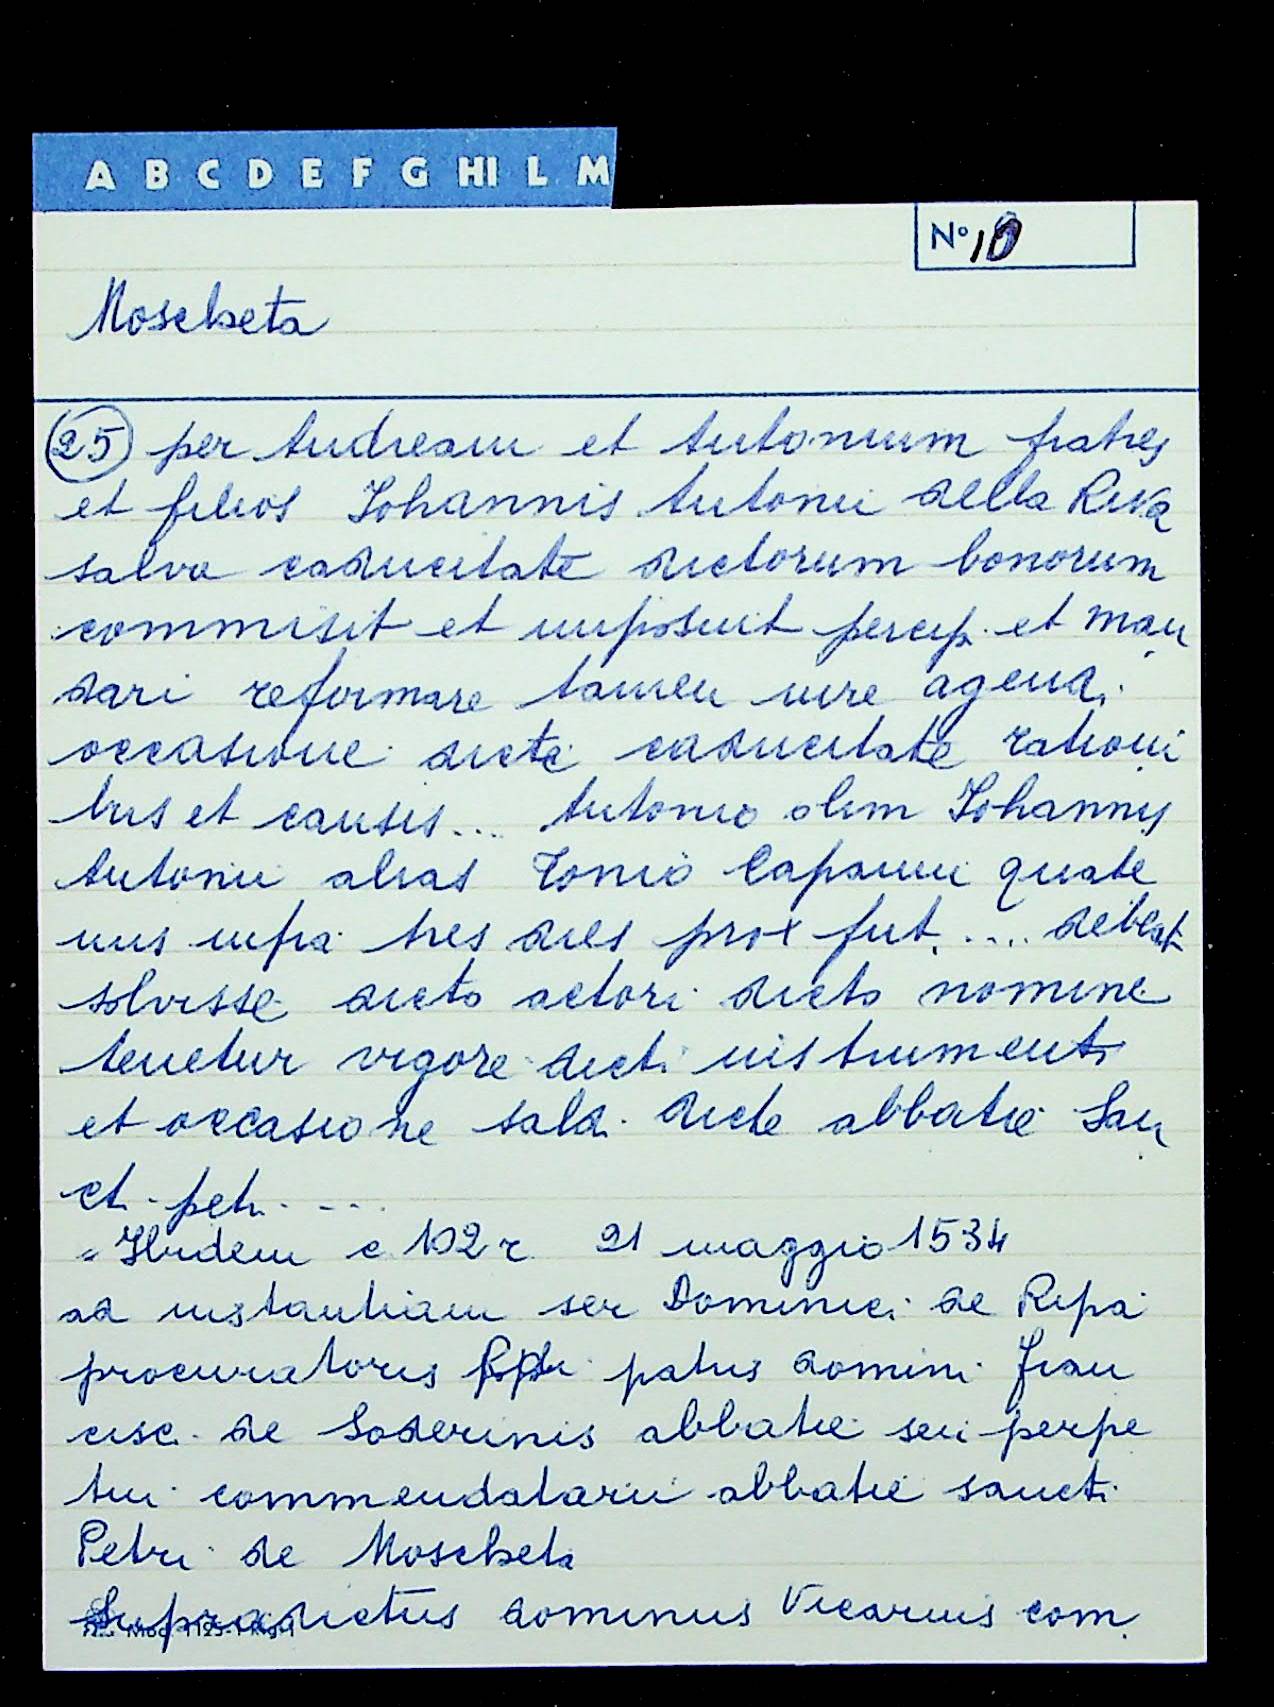 A B C D E F G HI L M
N° 10
Moscheta
25 per Andream et Antonium fratres
et filios Johannis Antonii della Riva
salva caducitate dictorum bonorum
commisit et imposuit percip. et man
dari reformare tamen iure agend.
occasione dicte caducitate rationi
bus et causis... Antonio olim Johannis
Antonii alias Tonio Capanni quate
nus infra tres dies prox fut. .... debeat
solvisse dicto actori dicto nomine
tenetur vigore dicti instrumenti
et occasione sald. dicte abbatie San
cti petri ....
" Ibidem c 102 r 21 maggio 1534
ad instantiam ser Dominici de Ripa
procuratoris patris domini Fran
cisci de Soderinis abbatie seu perpe
tui commendatarii abbatie sancti
Petri de Moscheta
Supradictus dominus Vicarius com